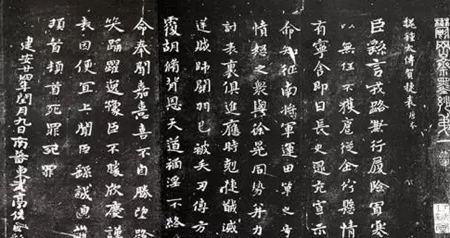 魏鍾太傅賀捷表 唐本
臣繇言戎路兼行履險冒寒
以無任不獲扈從企佇懸情
有寧舍即日長史逯充宣示
命知征南將軍運田單之奇
憤怒之眾與徐晃同勢并力
討表裏俱進應時剋捷馘滅
逆賊帥關羽已被矢刃傅方
覆胡脩背恩天道禍淫不終
命奉聞嘉憙喜不自勝望路
笑踊躍逸豫臣不勝欣慶謹
表因便宜上聞臣繇誠皇
頓首頓首死罪死罪
建安廿四年閏月九日南蕃東武亭侯臣